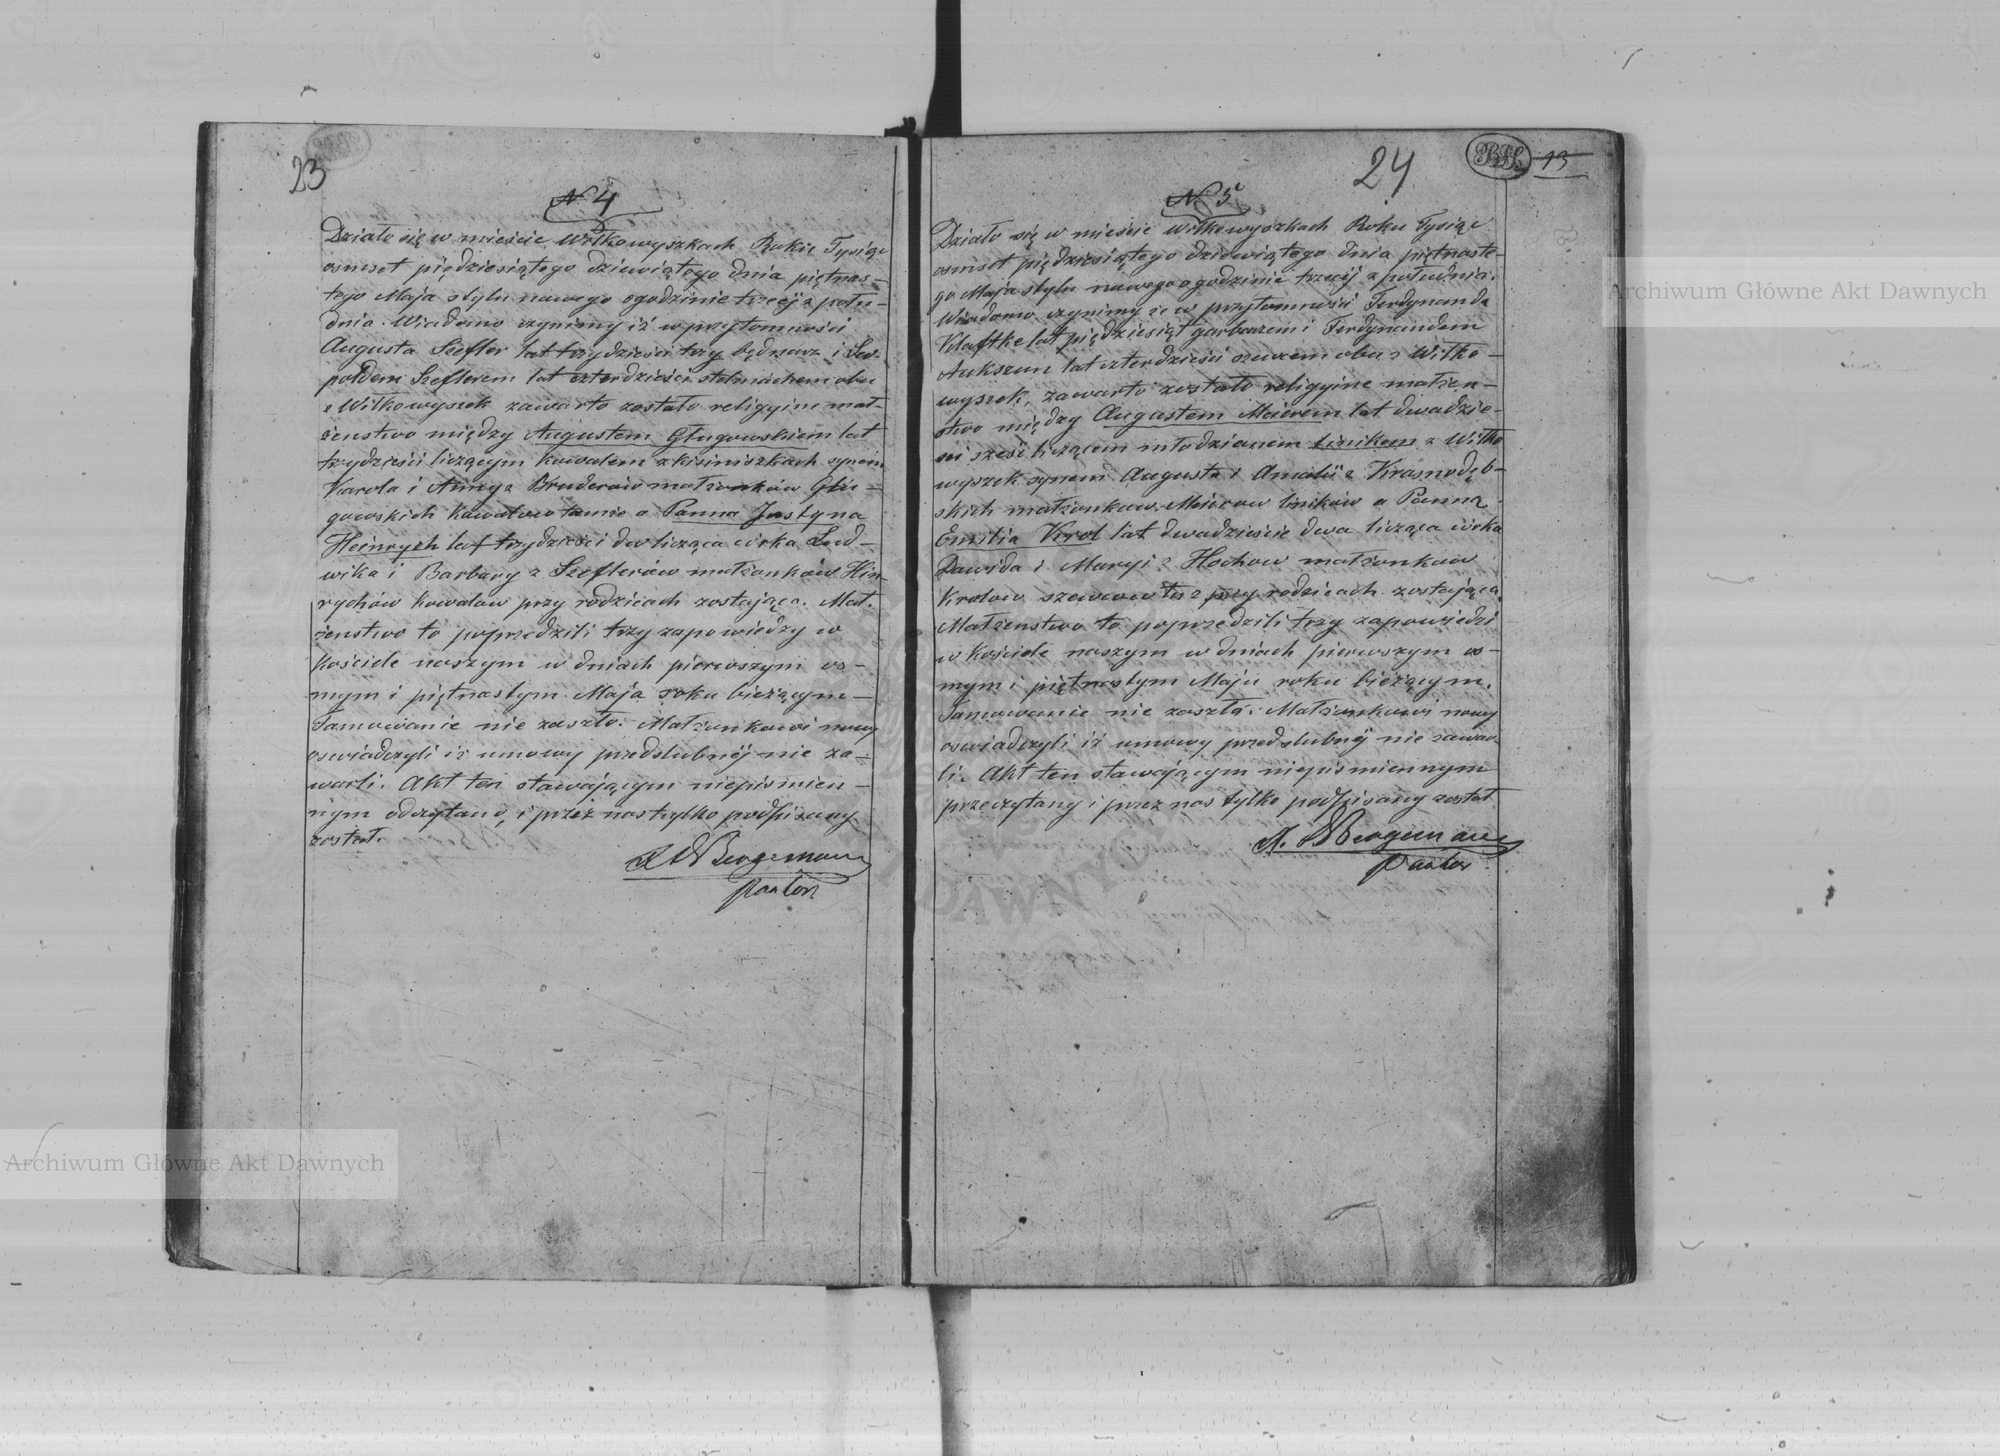 23
N 4
Działo się w mieście Wiłkowyszkach Roku Tysiąc
osmset pięćdziesiątego dziewiątego dnia piętnas-
tego Maja stylu nowego o godzinie trzeciej z połu-
dnia. Wiadomo czynimy iż w przytomności
Augusta Szefler lat trzydzieści trzy bednarz i Leo-
poldem Szeflerem lat czterdzieści stelmachem obu
z Wiłkowyszek zawarto zostało religijne mał-
żeństwo między Augustem Gługowskiem lat
trzydzieści liczącym kowalem z synem
Karola i Anny z Bruderów małżonków Głu-
gowskich kowalow tamże a Panną Justyna
Heinrych lat trzydzieści dw licząca córka Lud-
wika i Barbary z Szeflerów małżonków Hin-
rychów kowalow przy rodzicach zostająca. Mał-
żenstwo to poprzedzili trzy zapowiedzy w
kościele naszym w dniach pierwszym os-
mym i piętnastym Maja roku bieżącym-
Tamowanie nie zaszło. Małżonkowi nowy
oswiadczyli iż umowy przedslubnéj nie za-
warli. Akt ten stawającym niepismien-
nym odczytano, i przez nas tylko podpisany
został.
Bergemann
Pastor
24
13
N 5
Działo się w mieście Wiłkowyszkach Roku Tysiąc
osmset pięćdziesiątego dziewiątego dnia piętnaste-
go Maja stylu nowego o godzinie trzeciéj z południa.
Wiadomo czynimy że w przytomności Ferdynanda
Klaftke lat pięćdziesiąt garbarzem i Ferdynandem
Aukszun lat czterdzieści szewcem obu z Wiłko-
wyszek, zawarto zostało religijne małżen-
stwo między Augustem Meierem lat dwadzie-
sci sześć liczącem młodzianem z Wiłko
wyszek synem Augusta i Amalii z Krasnodęb-
skich małżonkow Meierow a Panną
Emilia Krol lat dwadzieście dwa licząca córka
Dawida i Maryi z Hochow małżonkow
Krolow szewcow tu z przy rodzicach zostająca.
Małżenstwo to poprzedzili trzy zapowiedzi
w kościele naszym w dniach pierwszym os-
mym i piętnastym Maju roku bieżącym.
Tamowanie nie zaszło. Małżonkowi nowy
oswiadczyli iż umowy przedslubnéj nie zawar
li. Akt ten stawającym niepismiennym
przeczytany i przez nas tylko podpisany został
Bergemann
Pastor
Archiwum Główne Akt Dawnych
Archiwum Główne Akt Dawnych